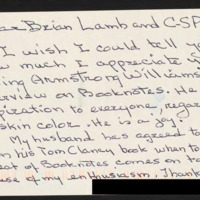 ar Brian Lamb and CSP
I wish I could tell yo
ow much I appreciate y
ing Armstrong Williams
erview on Booknotes. He
piration to everyone, regar
skin color. He is a joy.
My husband has agreed to
n his Tom Clancy book when to
eat of Booknotes comes on to
use of my enthusiasm. Thank